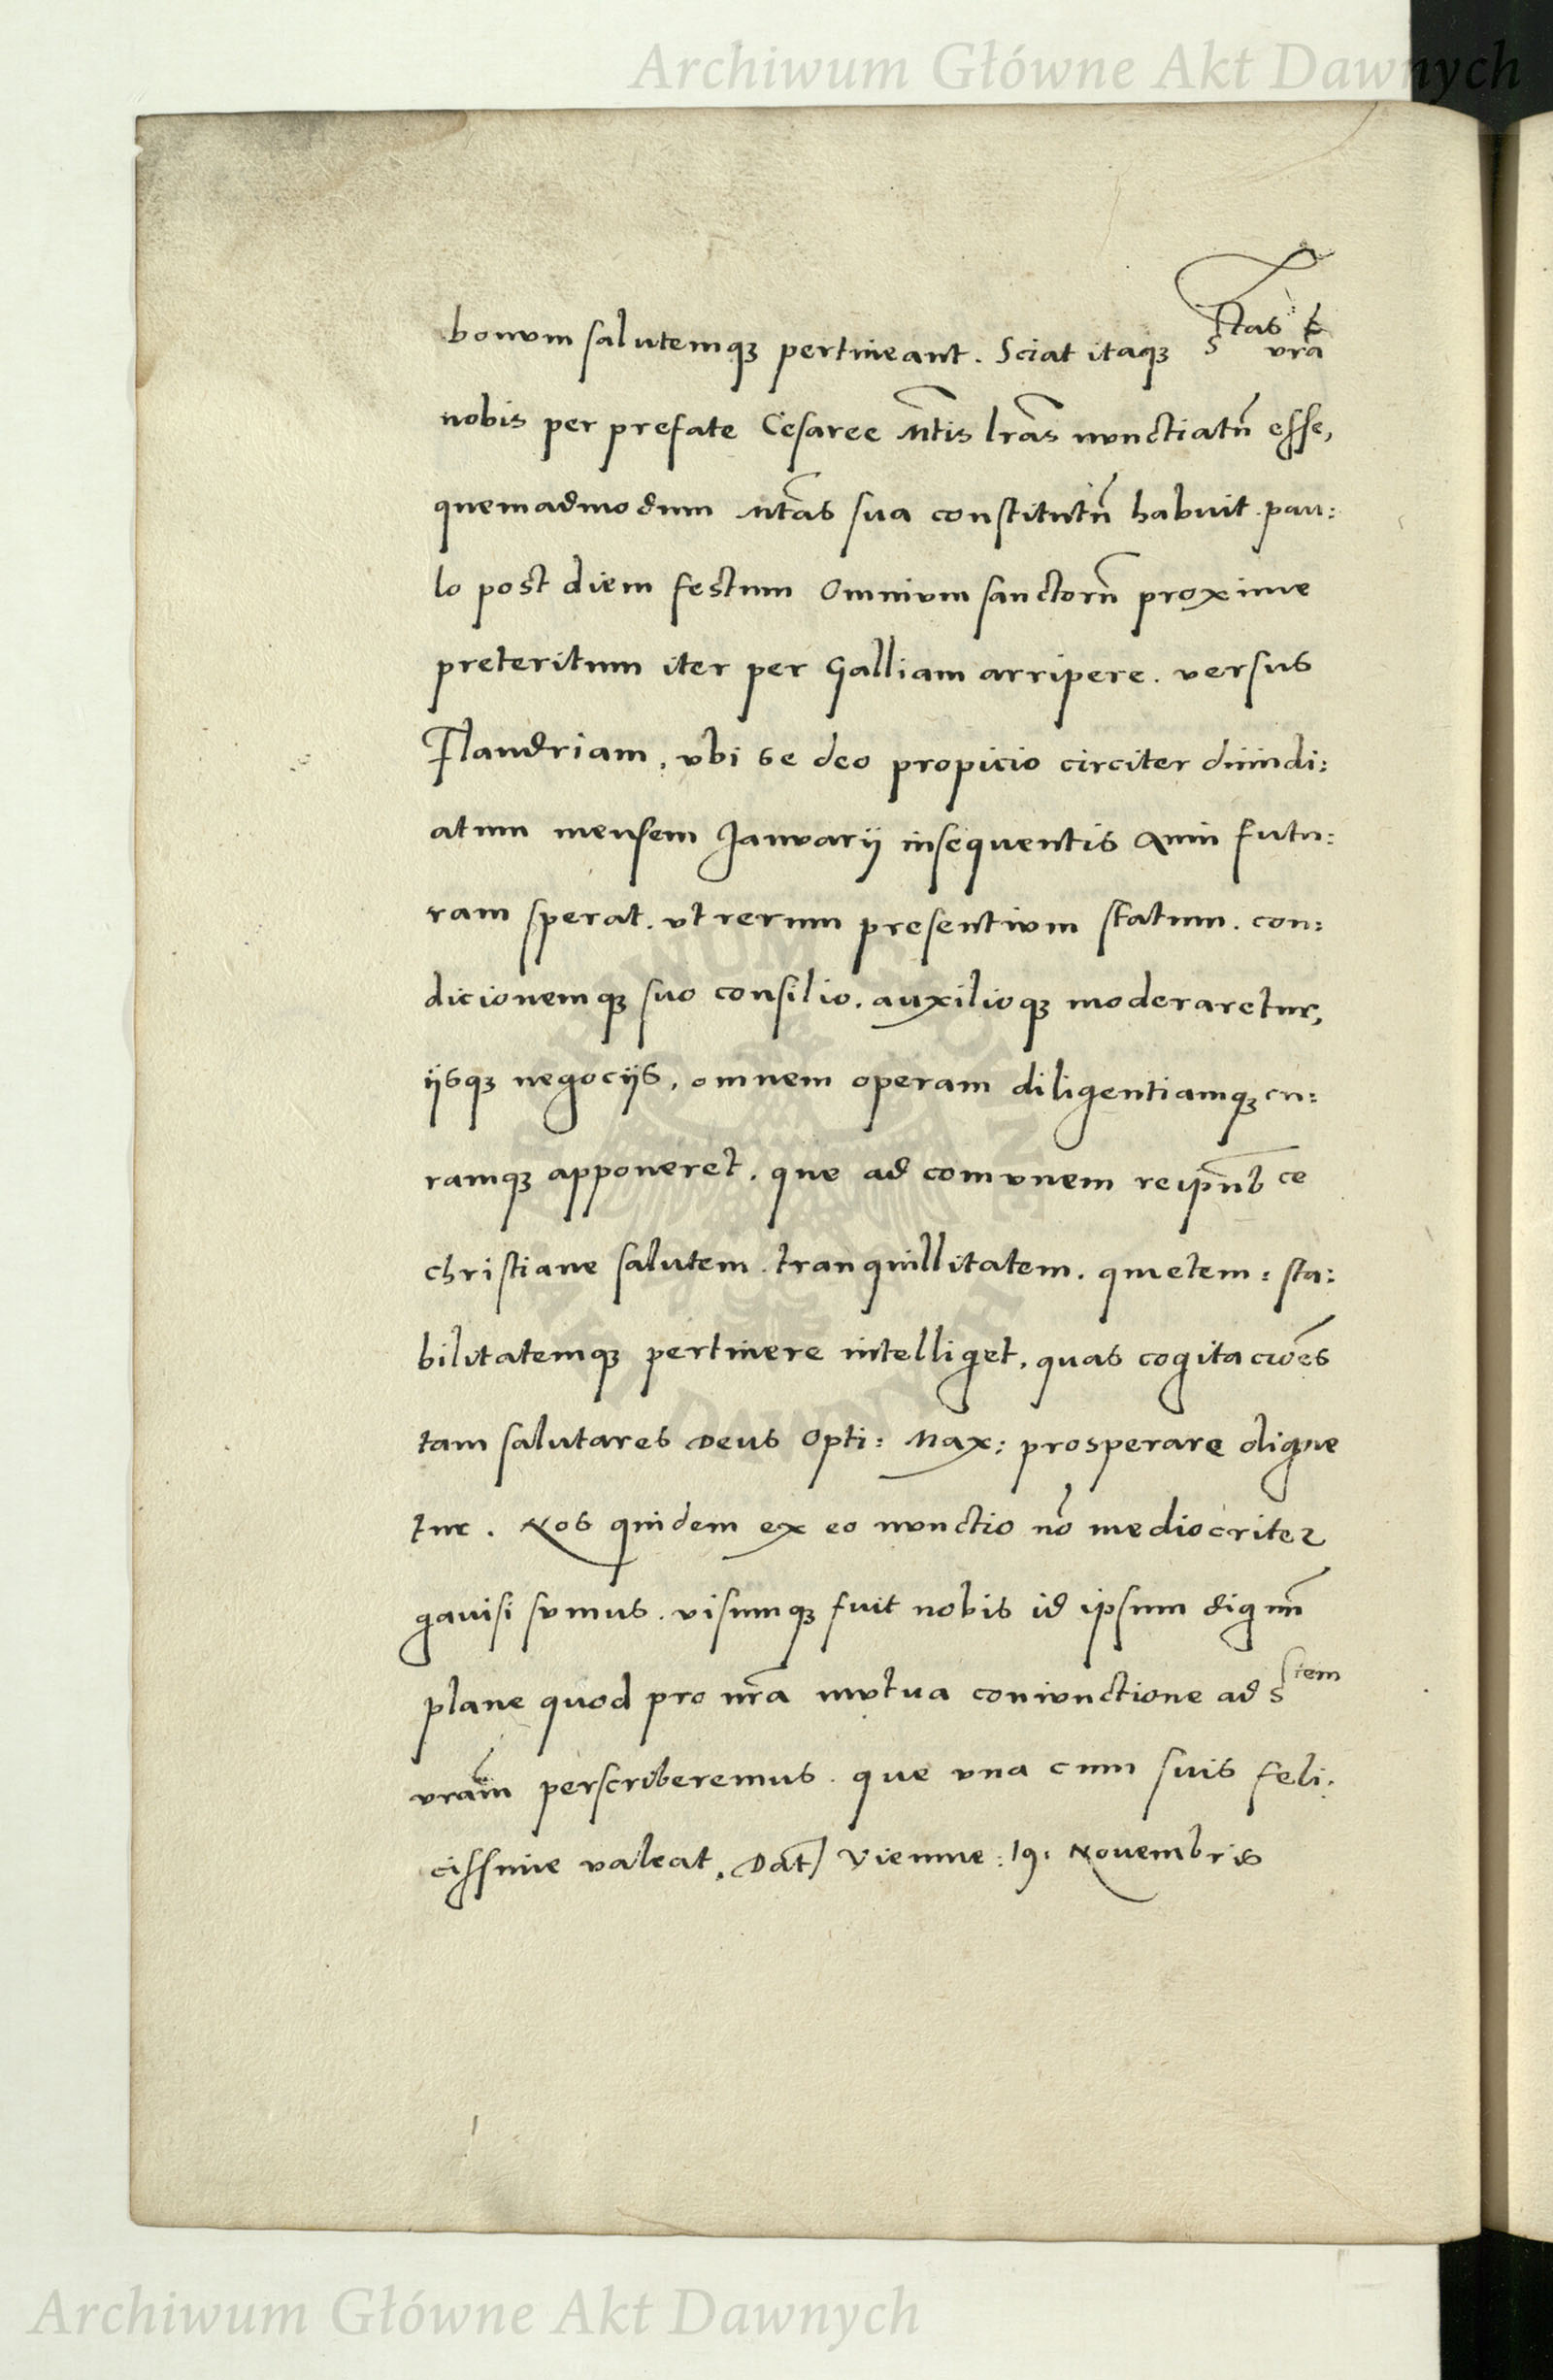 Archiwum Główne Akt Dawnych
bonum salutemq3 pertineant. Sciat itaq3 Stas vra
nobis per prefate Cesaree Mtis lras nunctiatu esse,
quemadmodum Mtas sua constitutu habuit pau:
lo post diem festum Omnium sanctoru proxime
preteritum iter per Galliam arripere. versus
Flandriam, ubi se deo propicio circiter dimidi:
atum mensem Januarij insequentis Anni futu:
ram sperat. ut rerum presentium statum. con:
dicionemq3 suo consilio. auxilioq3 moderaretur,
ijsq3 negocijs, omnem operam diligentiamq3 cu:
ramq3 apponeret. que ad comunem reipub ce
christiane salutem. tranquillitatem. quietem: sta:
bilitatemq3 pertinere intelliget, quas cogitacioes
tam salutares Deus Opti: Max: prosperare digne
tur. Nos quidem ex eo nunctio no mediocriter
gavisi sumus. visumq3 fuit nobis id ipsum dignu
plane quod pro nra mutua coniunctione ad Stem
vram perscriberemus. que una cum suis feli:
cissime valeat. Dat Vienne: 19. Novembris
Archiwum Główne Akt Dawnych